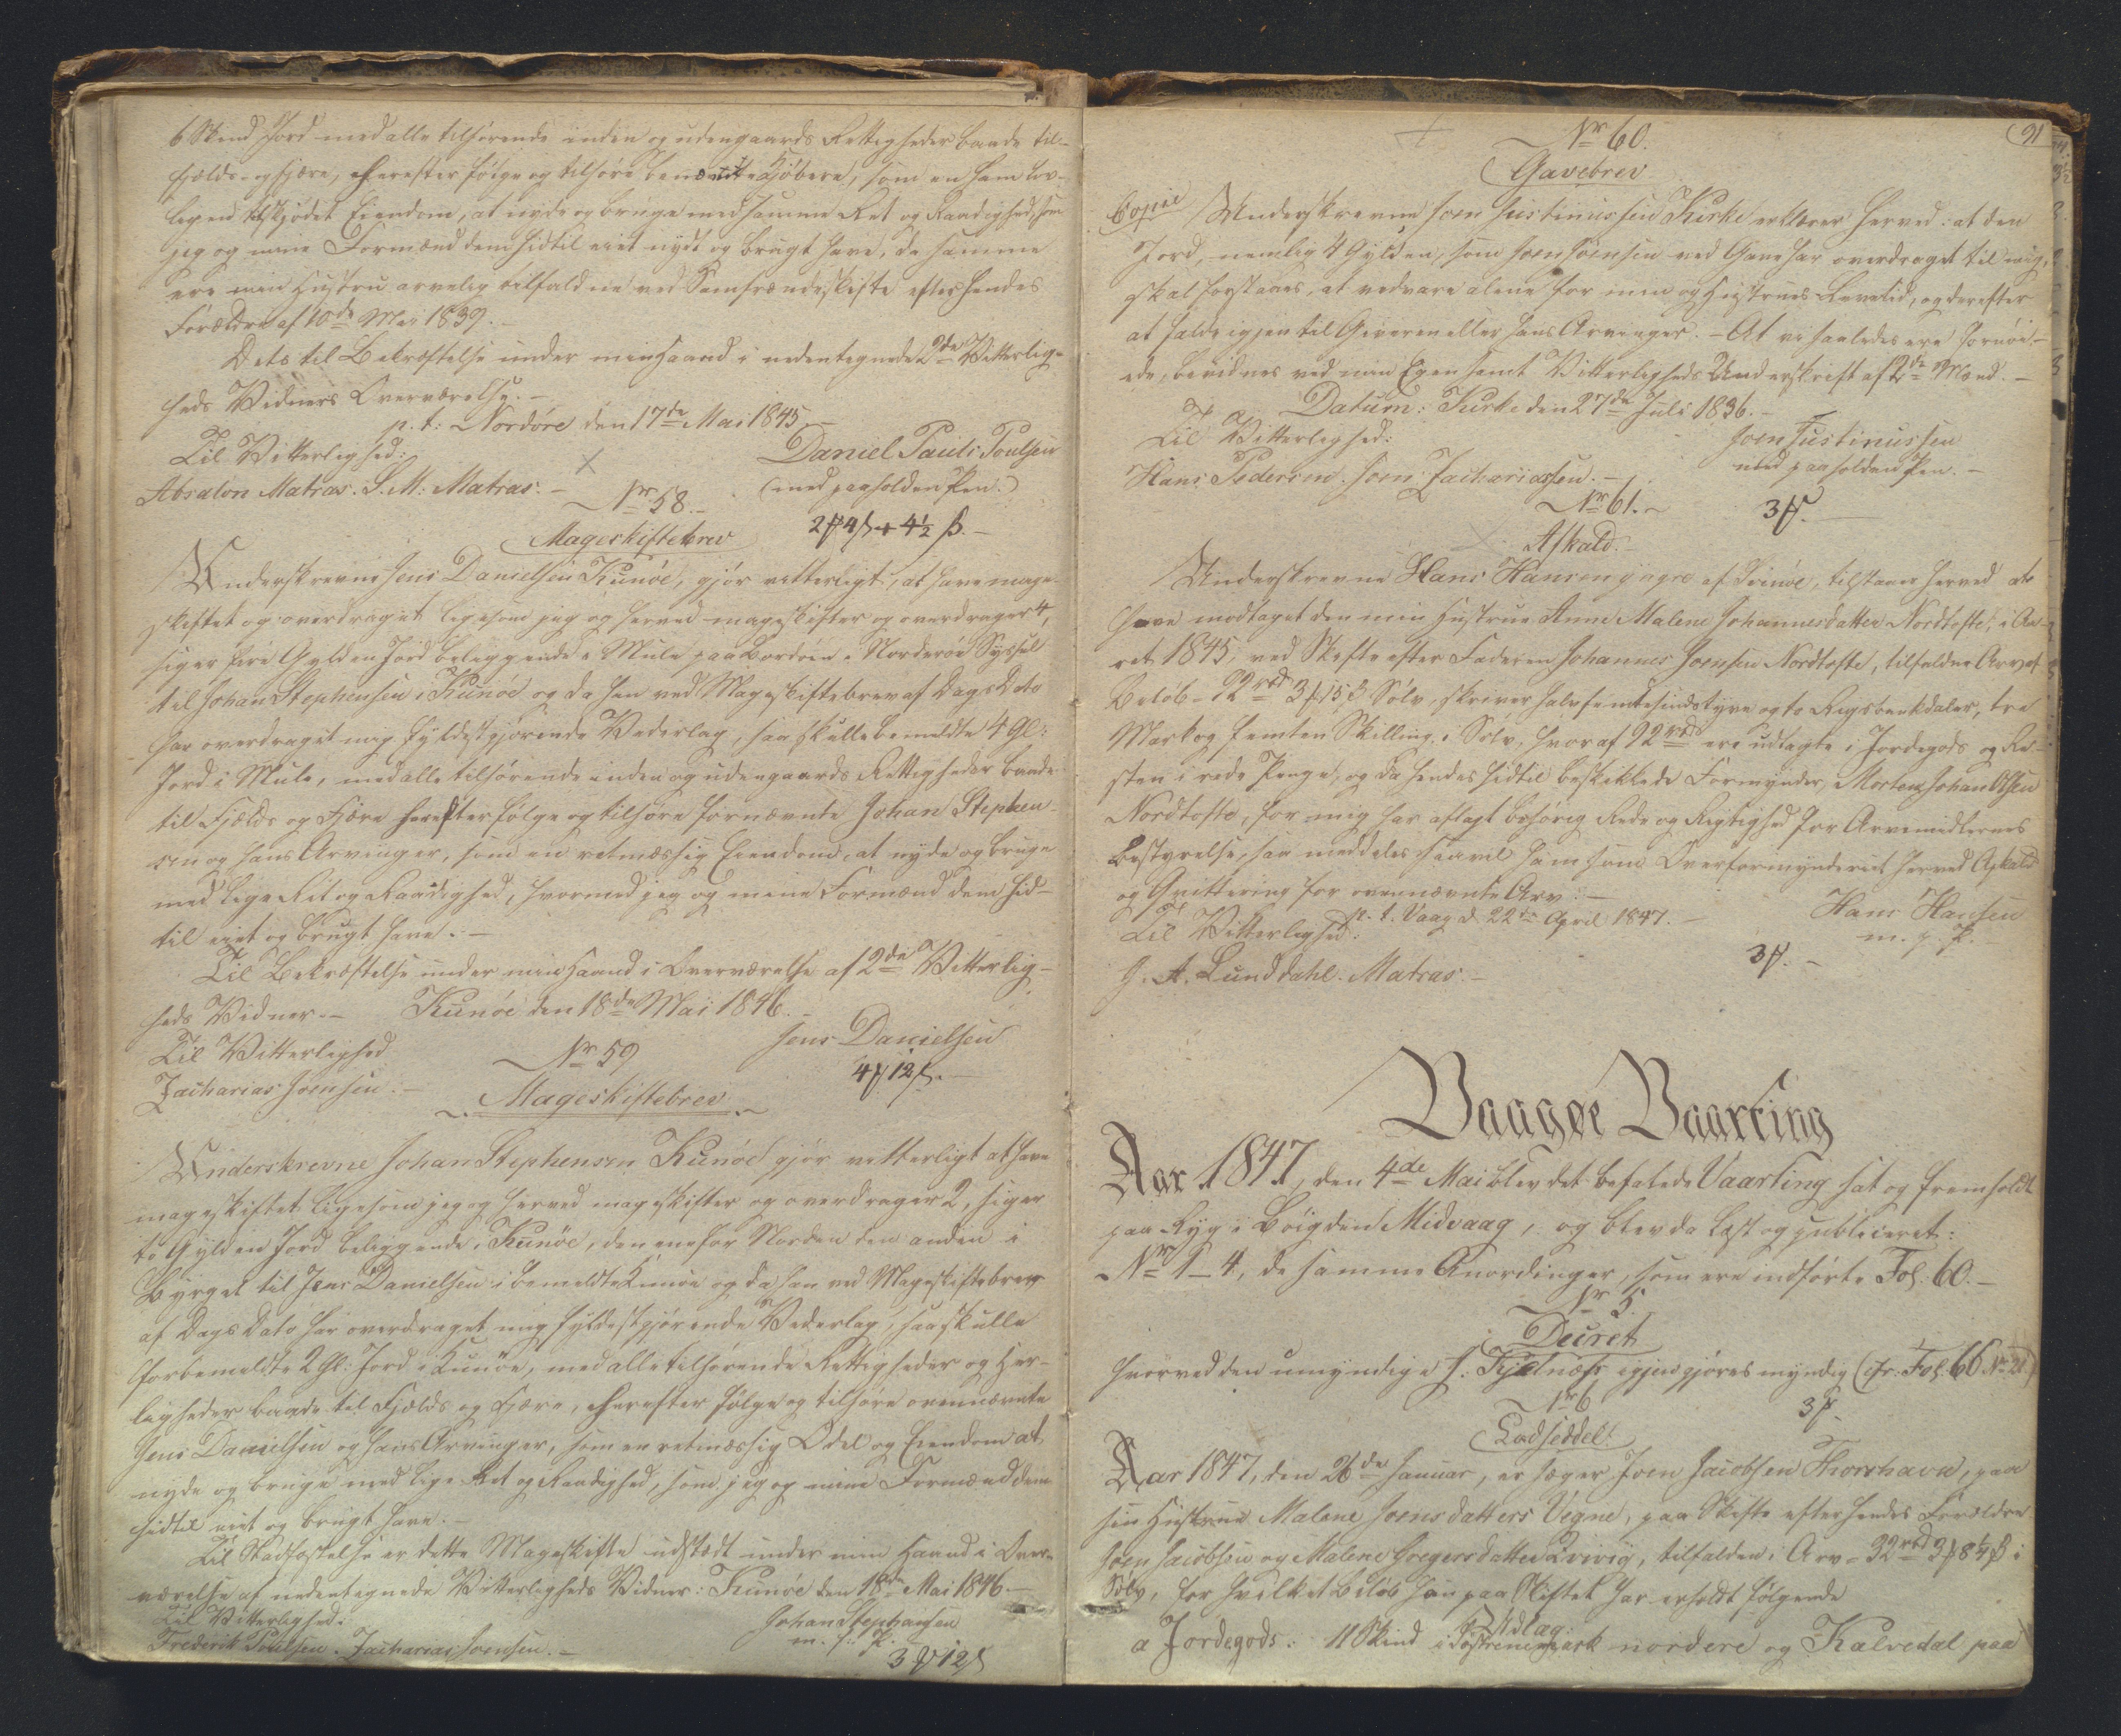 6 Skind Jord med alle tilhørende inden og udengaards Rettigheder baade til-
fjælds og fjære, herefter følge og tilhøre benævnte Kjøbere, som en ham lov-
ligen tilskjødet Eiendom, at nyde og bruge med samme Ret og Raadighed, som
jeg og mine Formænd dem hidtil eiet nydt og brugt have, da samme
ere min Hustru arvelig tilfaldne ved Samfrændeskifte efter hendes
Forældre af 10de Mai 1839.
Dets til Bekræftelse under min Haand i nedentegnede 2de Vitterlig-
heds Vidners Overværelse.-
p. t: Nordøre den 17de Mai 1845.
Til Vitterlighed:
Daniel Pauli Poulsen
Absalon Matras. S. M: Matras.-
(med paaholden Pen.)
Nr 58.-
Mageskiftebrev
Underskrevne Jens Danielsen Kunøe, gjør vitterligt, at have mage-
skiftet og overdraget ligesom jeg og herved mageskifter og overdrager 4,
siger fire Gylden Jord beliggende i Mule paa Bordøen i Norderøe Syssel
til Johan Stephensen i Kunøe og da han ved Mageskiftebrev af Dags Dato
har overdraget mig fyldestgjørende Vederlag, saa skulle bemeldte 4 Gl:
Jord i Mule, med alle tilhørende inden og udengaards Rettigheder baade
til Fjælds og Fjære herefter følge og tilhøre fornævnte Johan Stephen-
sen og hans Arvinger, som en retmæssig Eiendom, at nyde og bruge
med lige Ret og Raadighed, hvormed jeg og mine Formænd dem hid-
til eiet og brugt have.-
Til Bekræftelse under min Haand i Overværelse af 2de Vitterlig-
heds Vidner.- Kunøe den 18de Mai 1846.-
Til Vitterlighed
Jens Danielsen
Zacharias Joensen.-
Nr 59
Mageskiftebrev
Underskrevne Johan Stephensen Kunøe gjør vitterligt at have
mageskiftet ligesom jeg og herved mageskifter og overdrager 2, siger
to Gylden Jord beliggende i Kunøe, den ene for Norden den anden i
Byrget til Jens Danielsen i bemeldte Kunøe og da han ved Mageskiftebrev
af Dags Dato har overdraget mig fyldestgjørende Vederlag, saa skulle
forbemeldte 2 Gl: Jord i Kunøe, med alle tilhørende Rettigheder og Her-
ligheder baade til Fjælds og Fjære, herefter følge og tilhøre ovennævnte
Jens Danielsen og hans Arvinger, som en retmæssig Odel og Eiendom at
nyde og bruge med lige Ret og Raadighed, som jeg og mine Formænd dem
hidtil eiet og brugt have.-
Til Stadfæstelse er dette Mageskifte udstædt under min Haand i Over-
værelse af nedentegnede Vitterligheds Vidner: Kunøe den 18de Mai 1846.-
Til Vitterlighed:
Johan Stephansen
m. f. P.
Frederik Poulsen. Zacharias Joensen.-
91
Nr 60.
Gavebrev
Copie Underskrevne Joen Justinussen Kirke erklærer herved: at den
Jord, nemlig 4 Gylden, som Joen Joensen ved Gave har overdraget til mig,
skal forstaaes, at vedvare alene for min og Hustrues Levetid, og derefter
at falde igjen til Giveren eller hans Arvinger.- At vi saaledes ere fornøi-
ede, bevidnes ved min Egen samt Vitterligheds Underskrift af 2de Mænd.-
Datum: Kirke den 27de Juli 1836.-
Til Vitterlighed:
Joen Justinussen
med paaholden Pen.-
Hans Pedersen. Joen Zachariassen.-
Nr 61.-
Afkald.
Underskrevne Hans Hansen yngre af Svinøe, tilstaaer herved at
have modtaget den min Hustrue Anne Malene Johannesdatter Nordtofte, i Aa-
ret 1845, ved Skifte efter Faderen Johannes Joensen Nordtofte, tilfaldne Arv af
Beløb 92 rbd 3 15 ß Sølv, skriver halvfemtesindstyve og to Rigsbankdaler, tre
Mark og femten Skilling i Sølv, hvoraf 92 rbd ere udlagte i Jordegods og Re-
sten i rede Penge, og da hendes hidtil beskikkede Formynder, Morten Johan Olsen
Nordtofte, for mig har aflagt behørig Rede og Rigtighed for Arvemidlernes
Bestyrelse, saa meddeles saavel ham som Overformynderiet herved Afkald
og Qvittering for ovennævnte Arv:-
p. t. Vaag d. 22de April 1847.-
Til Vitterlighed:
Hans Hansen
m. p. P.
J. A. Lunddahl. Matras.-
Vaagøe Vaarting
Aar 1847, den 4de Mai blev det befalede Vaarting sat og fremholdt
paa Ryg i Bøigden Midvaag, og blev da læst og publiceret:
Nr 1-4, de samme Anordninger, som ere indførte Fol. 60.-
Nr 5.
Decret
hvorved den umyndige J. Kjelnæs igjen gjøres myndig (cfr. Fol. 66 No 21)
Nr 6
Lodseddel.
Aar 1847, den 26de Januar, er Jæger Joen Jacobsen Thorshavn, paa
sin Hustrue Malene Joensdatters Vegne, paa Skifte efter hendes Forældre
Joen Jacobsen og Malene Joegersdatter Qvivig, tilfalden i Arv 32 rbd 3 8¼ ß i
Sølv, for hvilket Beløb han paa Skiftet har erholdt følgende
Udlag:
a Jordegods: 11 Skind i nordere og Kalvedal paa